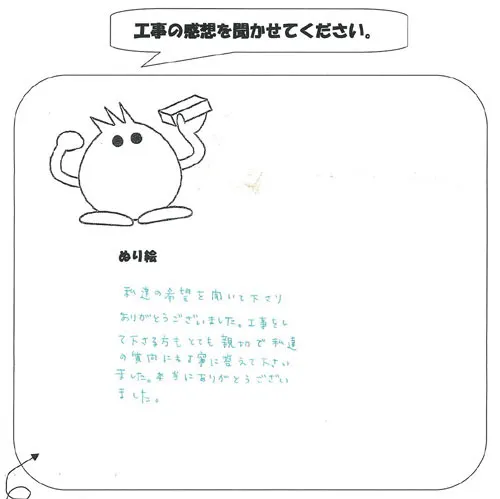 工事の感想を聞かせてください。
ぬり絵
私達の希望を聞いて下さり
ありがとうございました。工事をし
て下さる方もとても親切で私達
の質問にも丁寧に答えて下さい
ました。本当にありがとうござい
ました。